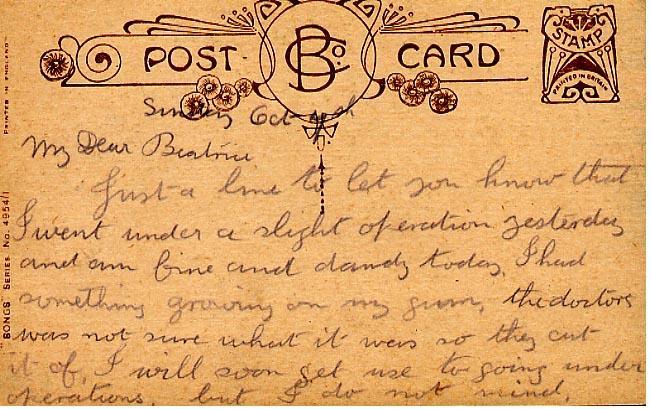 POST CARD
BCo.
STAMP
PRINTED IN BRITAIN
PRINTED IN ENGLAND
"SONGS" SERIES No. 4954/1
Sunday Oct
My Dear Beatrice
Just a line to let you know that
I went under a slight operation yesterday
and am fine and dandy today, I had
something growing on my gum, the doctors
was not sure what it was so they cut
it of, I will soon get use to going under
operations, but I do not mind.